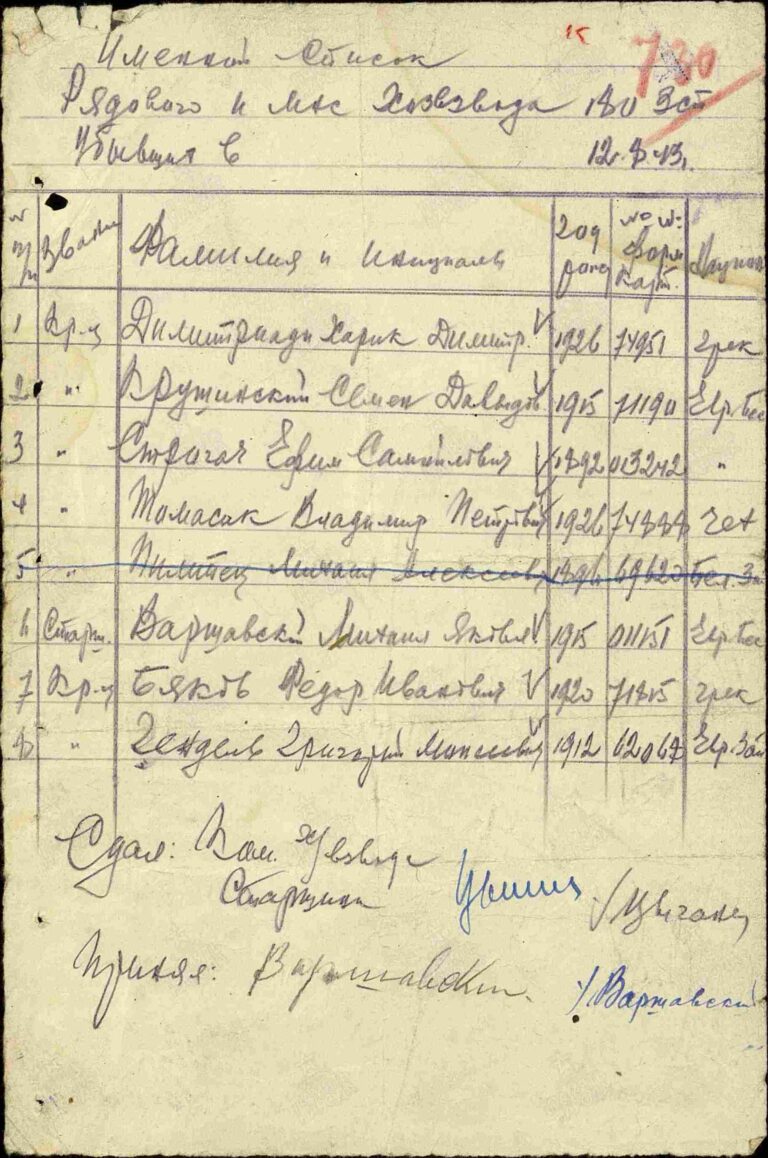 Именной Список
Рядового и мнс Хозвзвода 180 Зсп
Убывших в 12.8.43г.
№ п/п Звание Фамилия и инициалы год рожд №№ форм карт. Национ
1 Кр-ц Димитриади Харик Димитр. V 1926 74951 грек
2 " Крушинский Семен Давыдов V 1915 71190 Евр. Бес
3 " Стригач Ефим Самойлович V 1892 013242 "
4 " Томасик Владимир Петрович V 1926 74888 чех
5 " Пилипец Михаил Алексеев 1896 69620 Бел. Зап
6 Старш. Варшавский Михаил Яковл. V 1915 011151 Евр. Бес
7 Кр-ц Бяков Федор Иванович V 1920 71815 грек
8 " Гендель Григорий Моисеевич V 1912 62067 Евр. Зап
Сдал: Ком. Х/взвода
Старшина /Цыганец
Принял: Варшавский. /Варшавский